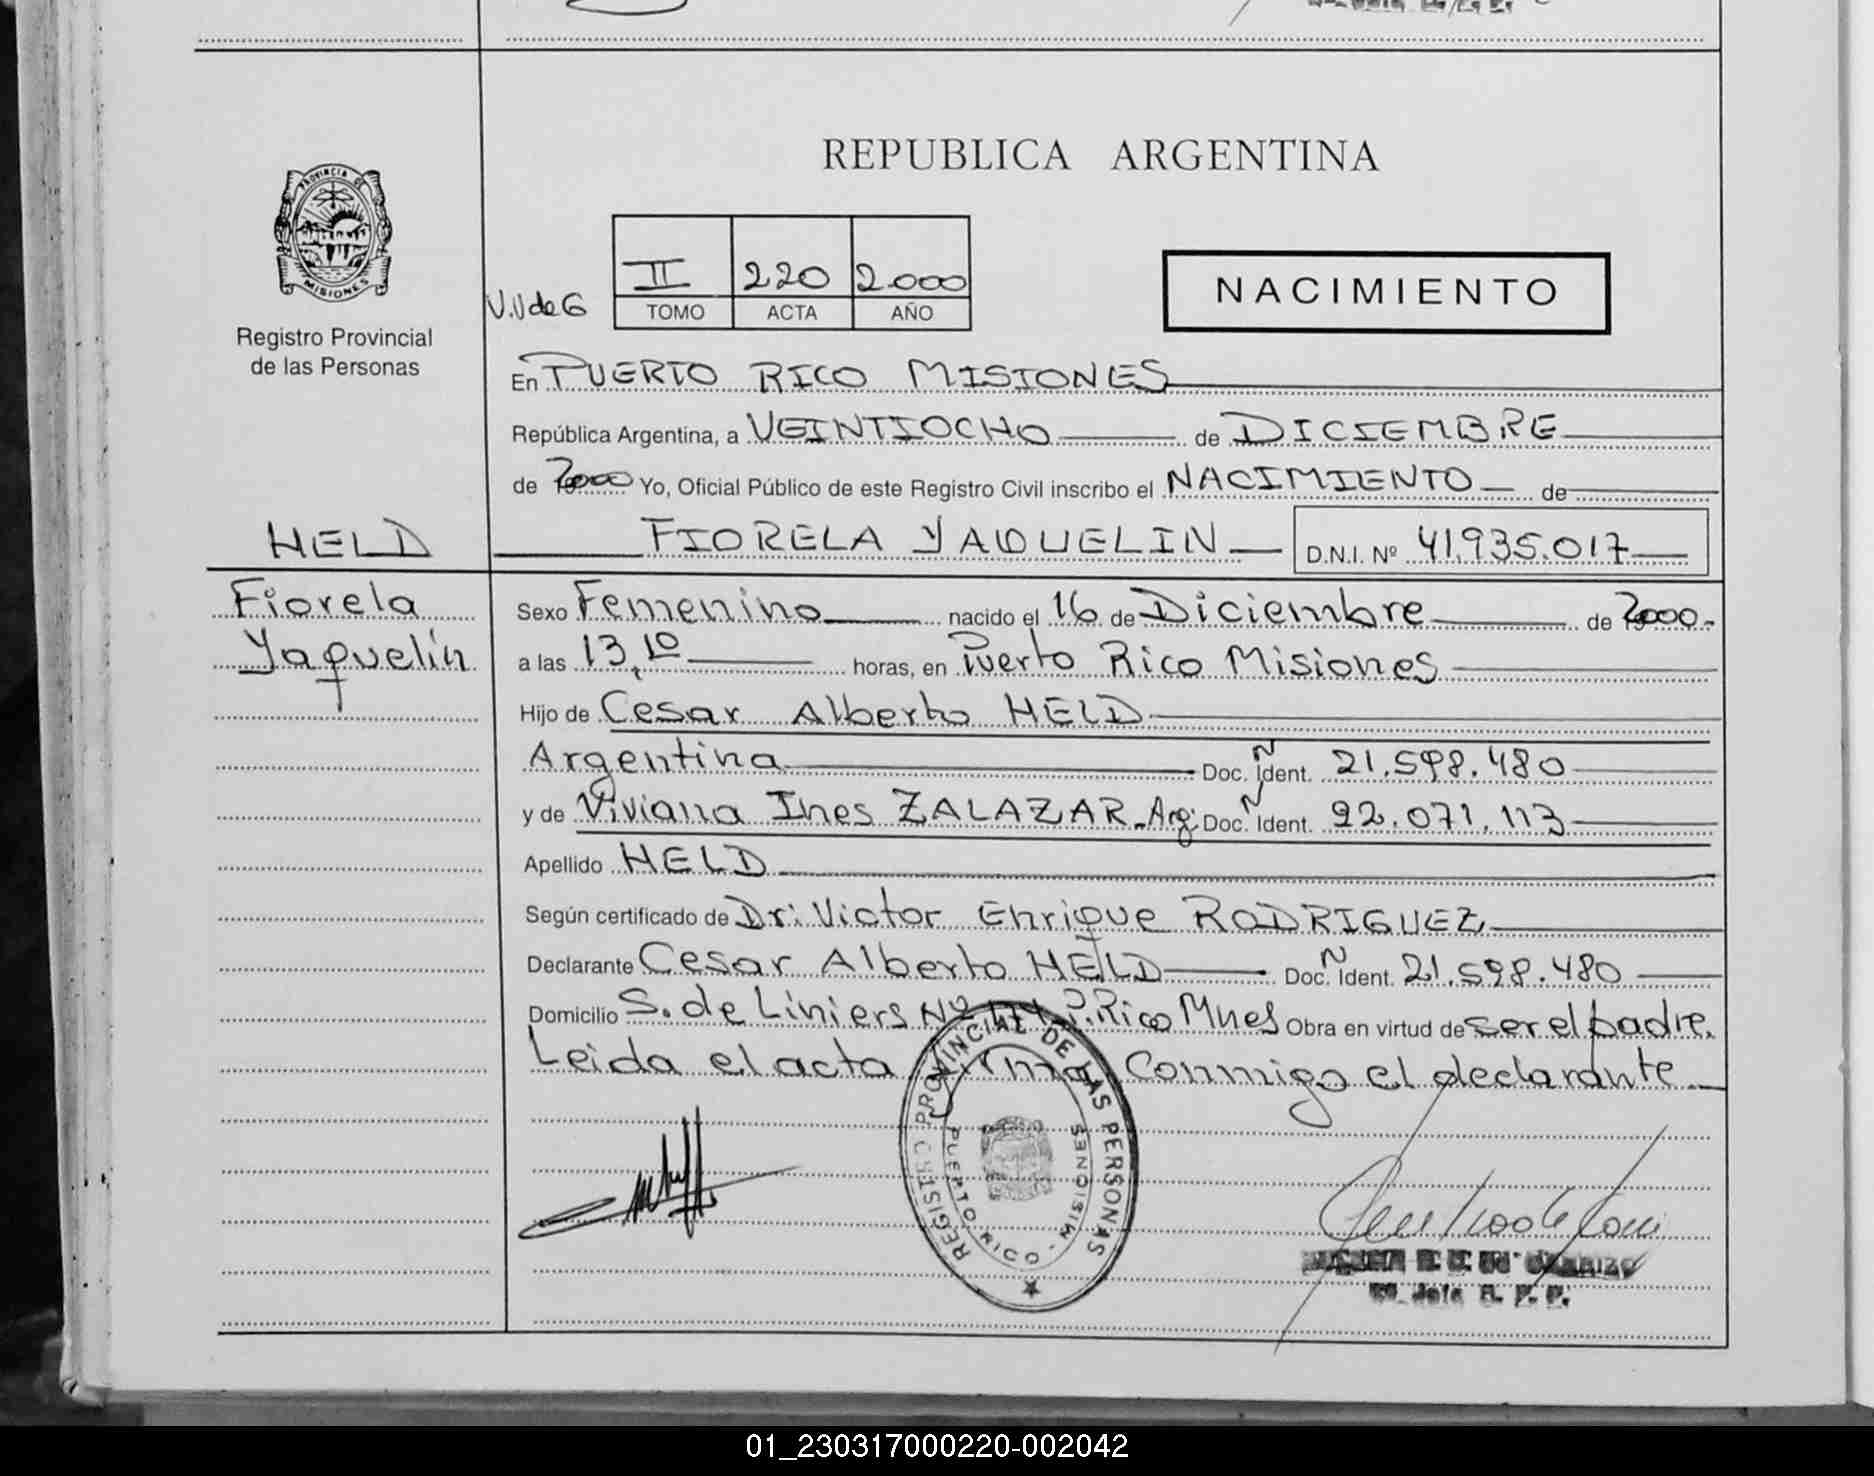 PROVINCIA DE
MISIONES
Registro Provincial
de las Personas
REPUBLICA ARGENTINA
V.V de G
II 220 2.000
TOMO ACTA AÑO
NACIMIENTO
En PUERTO RICO MISIONES
República Argentina, a VEINTIOCHO de DICIEMBRE
de 2000 Yo, Oficial Público de este Registro Civil inscribo el NACIMIENTO de
HELD
FIORELA YAQUELIN D.N.I. Nº 41.935.017
Fiorela
Yaquelín
Sexo Femenino nacido el 16 de Diciembre de 2000.
a las 13,10 horas, en Puerto Rico Misiones
Hijo de Cesar Alberto HELD
Argentina Doc. Ident. Ñ 21.598.480
y de Viviana Ines ZALAZAR-Arg. Doc. Ident. Ñ 22.071.113
Apellido HELD
Según certificado de Dr. Victor Enrique RODRIGUEZ
Declarante Cesar Alberto HELD Doc. Ident. Ñ 21.598.480
Domicilio S. de Liniers Nº P. Rico Mnes Obra en virtud de ser el padre.
Leida el acta firma conmigo el declarante
REGISTRO PROVINCIAL DE LAS PERSONAS
PUERTO RICO - MISIONES
Jefe R. P. P.
01_230317000220-002042